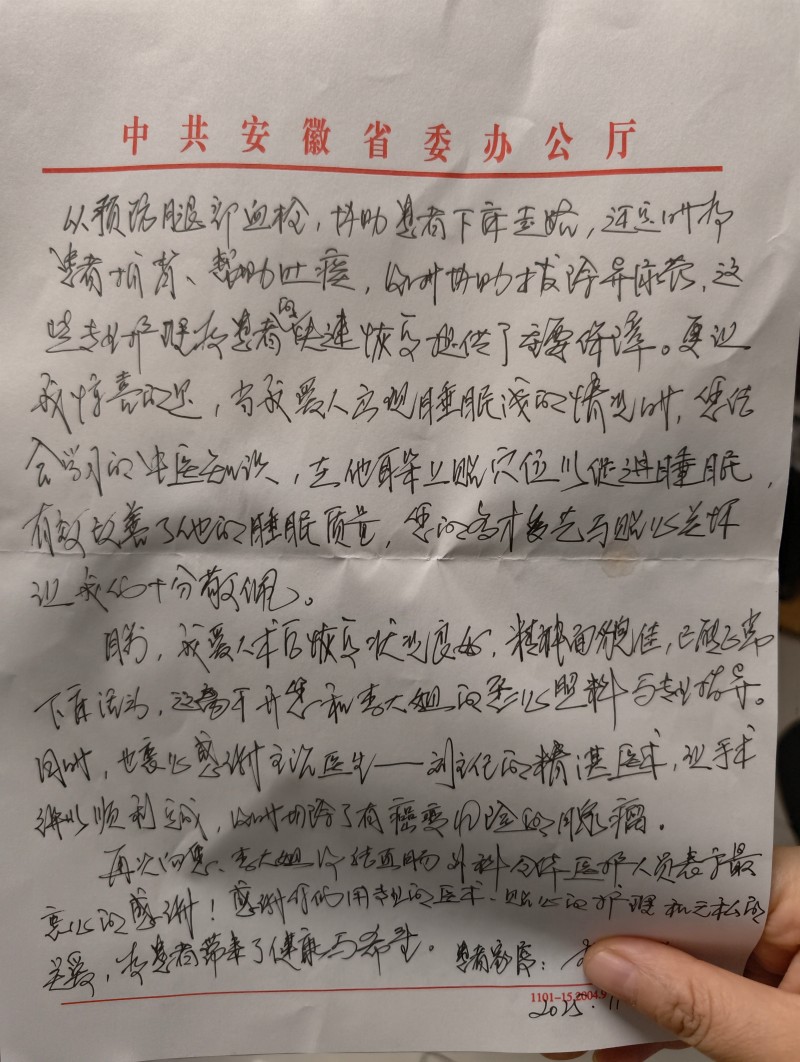 中共安徽省委办公厅
从预防腿部血栓，协助患者下床走路，还定时为
患者拍背、帮助吐痰，及时协助拔除导尿管，这
些专业护理为患者的快速恢复提供了重要保障。更让
我惊喜的是，当我爱人出现睡眠浅的情况时，您结
合学习的中医知识，在他耳朵上贴穴位以促进睡眠，
有效改善了他的睡眠质量，您的多才多艺与贴心关怀
让我们十分敬佩。
目前，我爱人术后恢复状况良好，精神面貌佳，已能正常
下床活动，这离不开您和李大姐的悉心照料与专业指导。
同时，也衷心感谢主治医生——刘主任的精湛医术，让手术
得以顺利完成，及时切除了有癌变风险的肠瘤。
再次向您、李大姐及结直肠外科全体医护人员表示最
衷心的感谢！感谢你们用专业的医术、贴心的护理和无私的
关爱，为患者带来了健康与希望。 患者家属：
1101-15.2004.9
2025.11